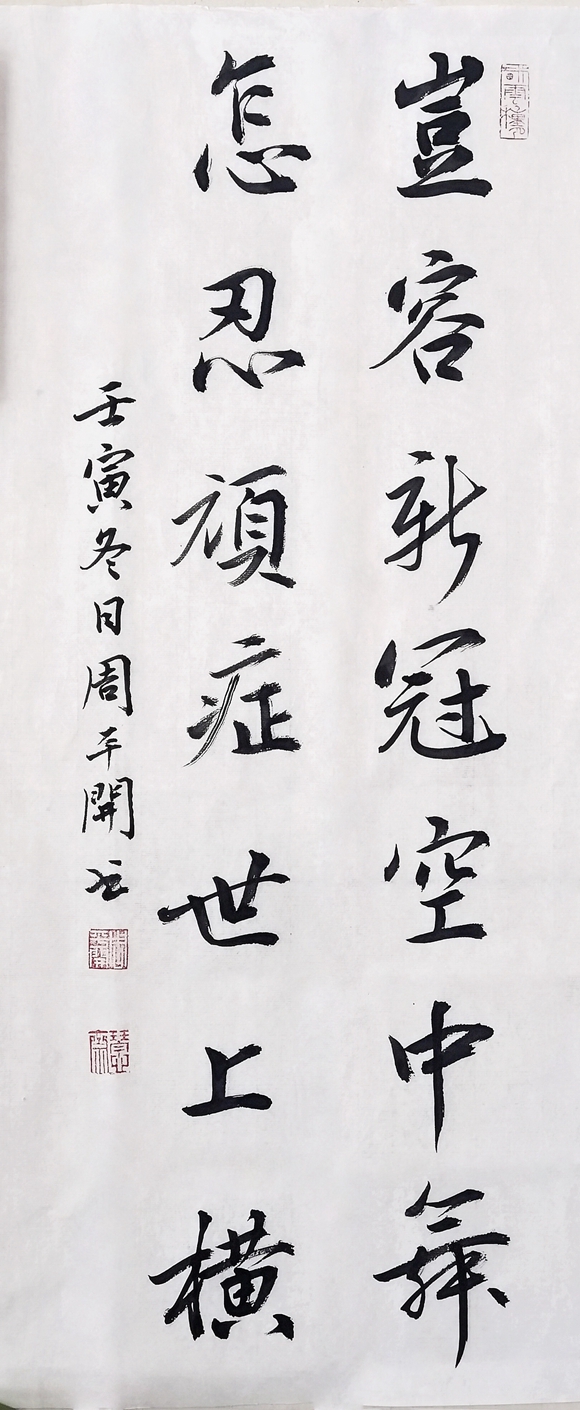 豈容新冠空中舞
怎忍頑症世上橫
壬寅冬日周平開書